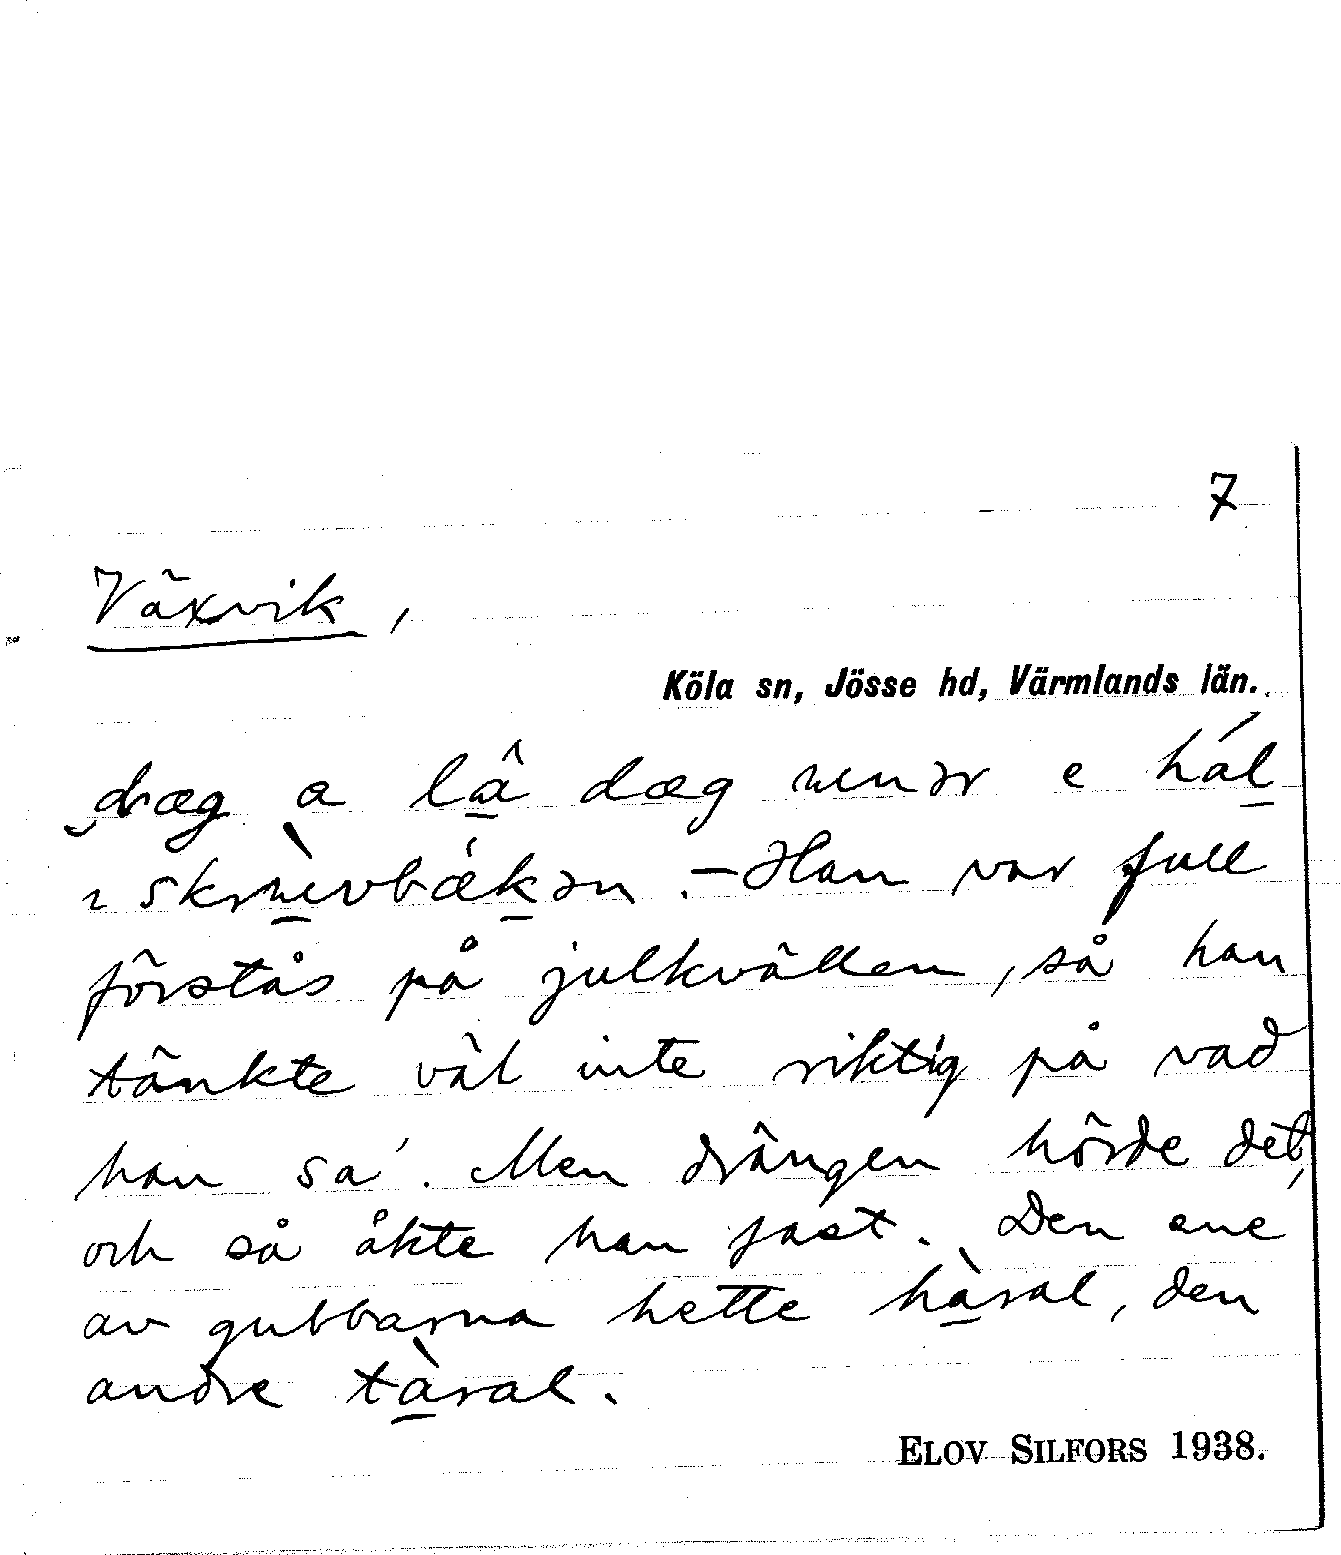 7
Växvik,
Köla sn, Jösse hd, Värmlands län.
dræg a lâ dæg unər e hál
ɩ skrùvbǽkən. – Han var full
förstås på julkvällen, så han
tänkte väl inte riktig på vad
han sa'. Men drängen hörde det,
och så åkte han fast. Den ene
av gubbarna hette hàral, den
andre tàral.
ELOV SILFORS 1938.